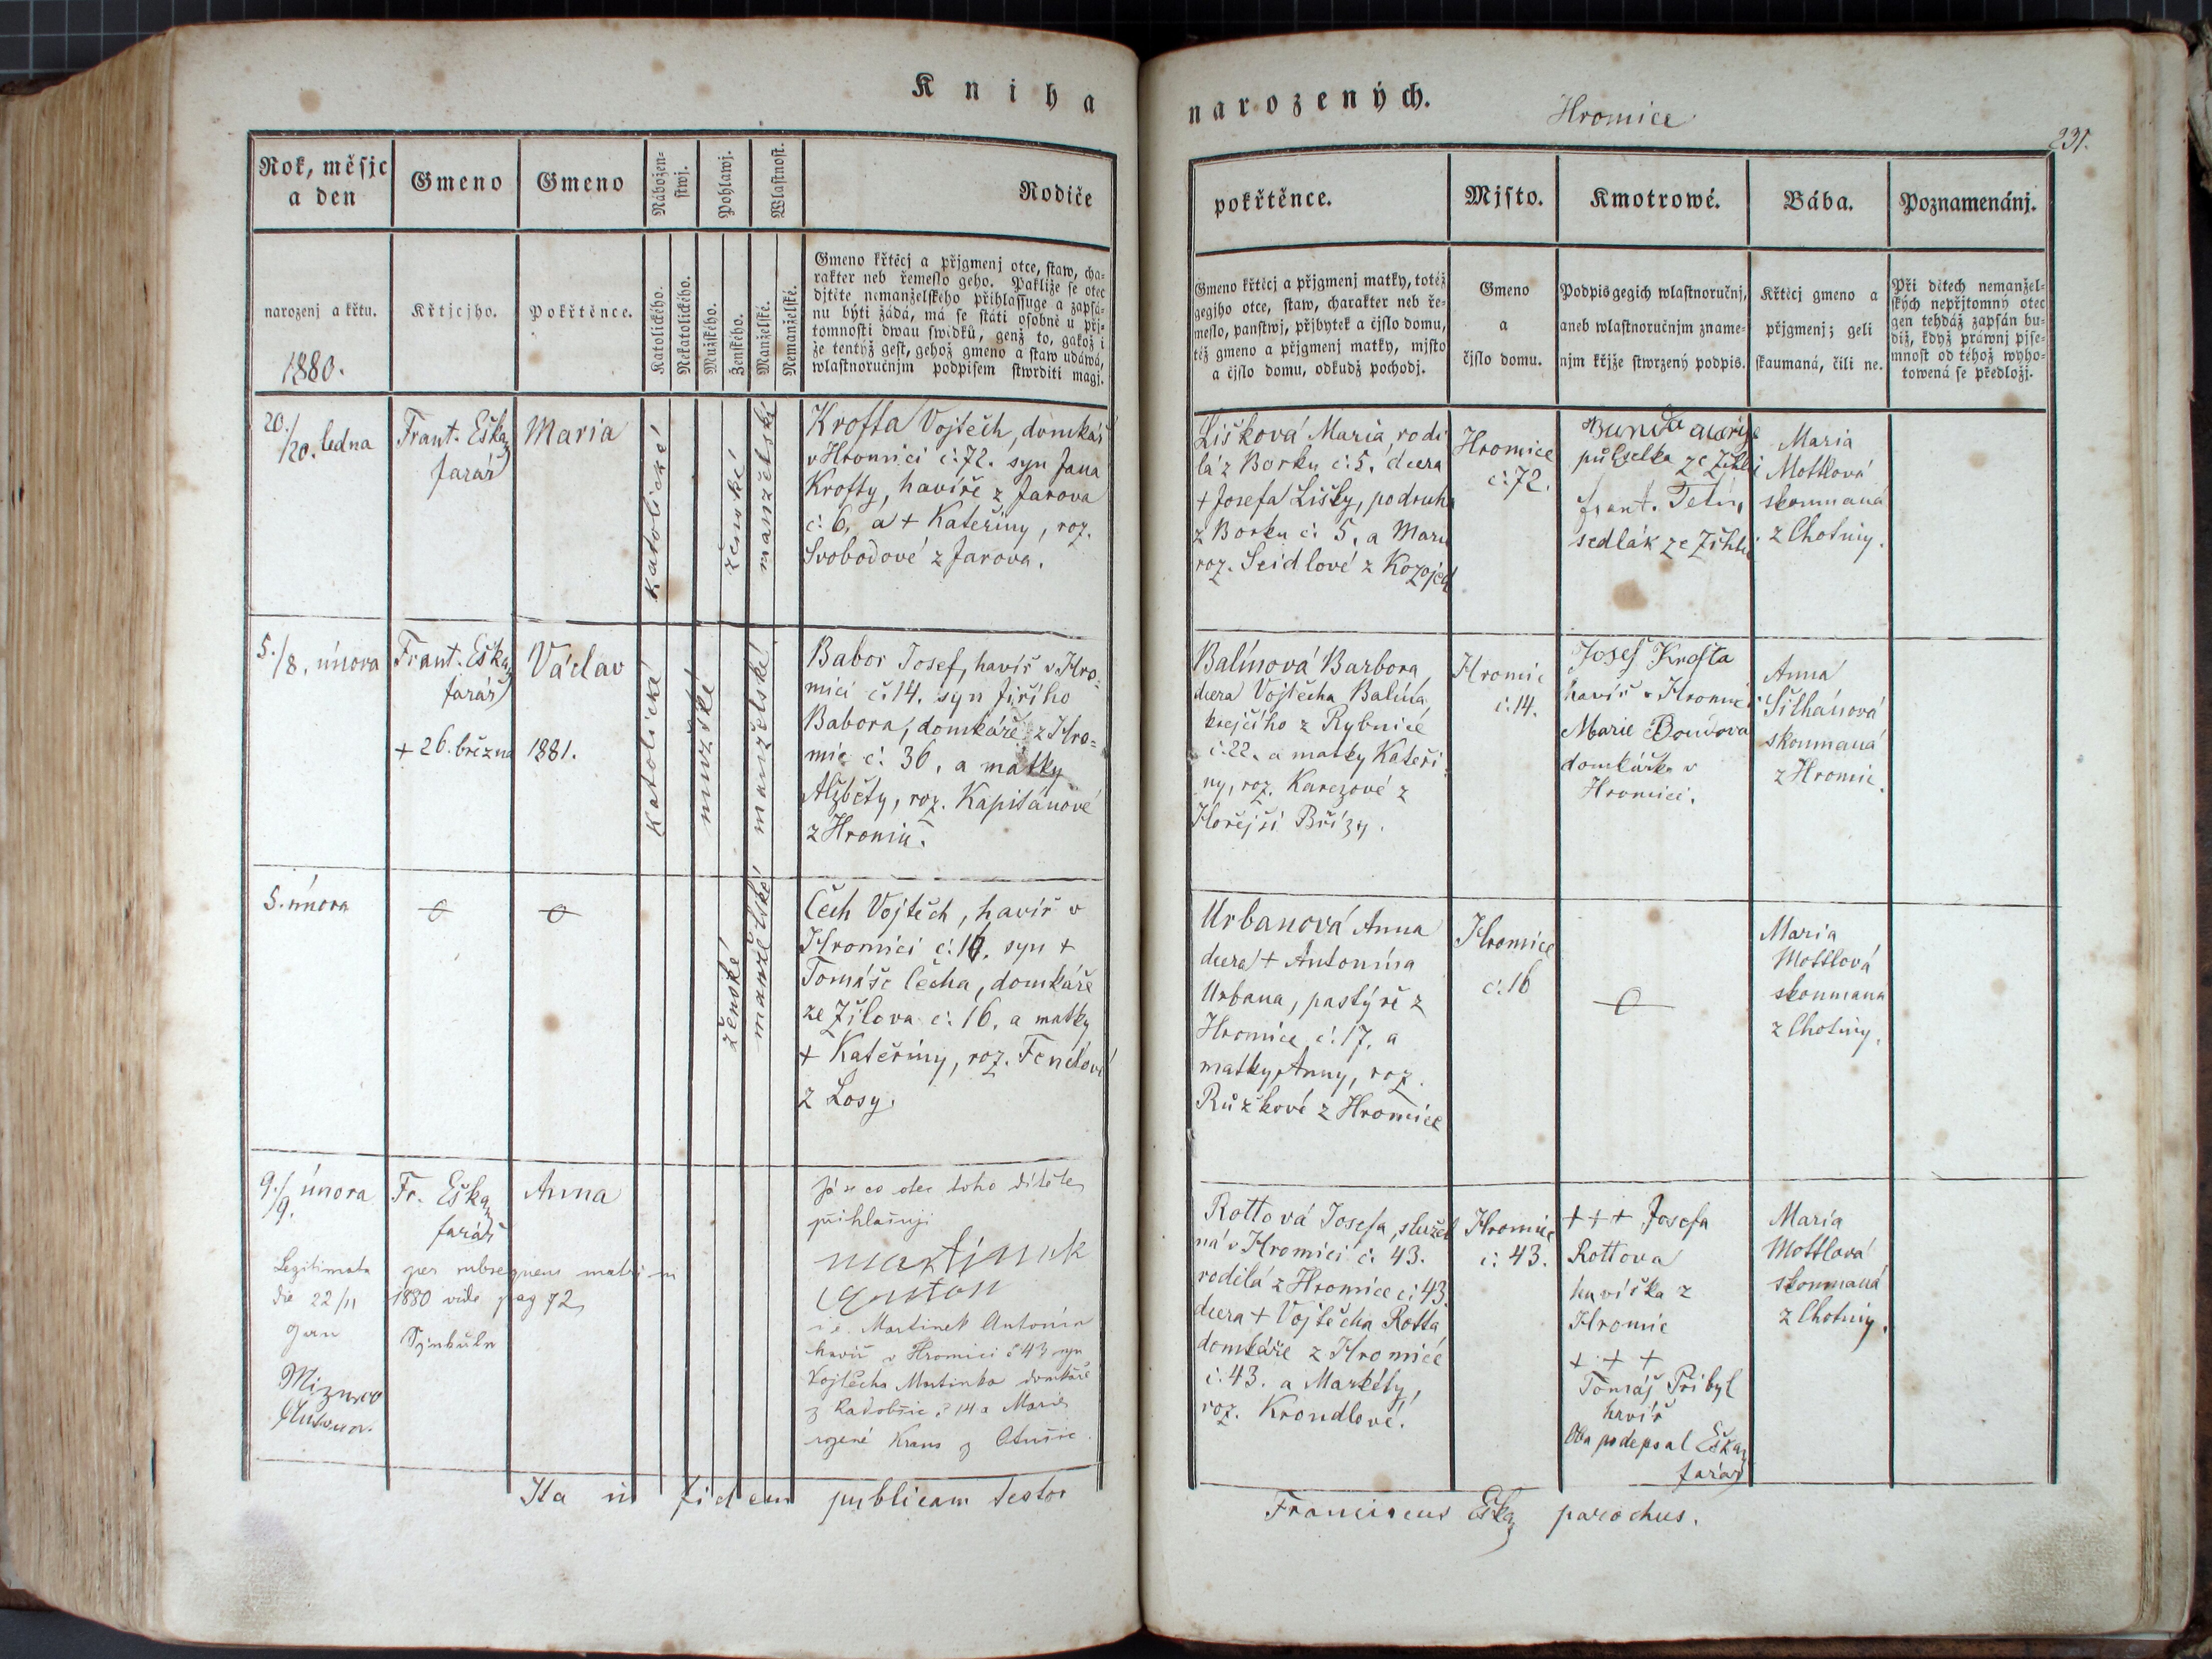 Kniha
Rok, měsjc
a den
Gmeno
Gmeno
Nábožen-
stwj.
Pohlawj.
Wlastnost.
Rodiče
narozenj a křtu.
Křtjcjho.
Pokřtěnce.
Katolického.
Nekatolického.
Mužského.
Ženského.
Manželské.
Nemanželské.
Gmeno křtěcj a přjgmenj otce, staw, cha-
rakter neb řemeslo geho. Pakliže se otec
djtěte nemanželského přihlassuge a zapsá-
nu býti žádá, má se státi osobně u při-
tomnosti dwau swědků, genž to, gakož i
že tentýž gest, gehož gmeno a staw udáwá,
wlastnoručnjm podpisem stwrditi magj.
1880.
20./20. ledna
Frant. Eška,
farář
Maria
katolické
ženské
manželské
Krofta Vojtěch, domkář
v Hromici č. 72. syn Jana
Krofty, havíře z Jarova
č. 6. a + Kateřiny, roz.
Svobodové z Jarova.
5./8. února
Frant. Eška,
farář
Václav
+ 26. března 1881.
katolické
mužské
manželské
Babor Josef, havíř v Hro-
mici č. 14. syn Jiřího
Babora, domkáře z Hro-
mic č. 36, a matky
Alžběty, roz. Kapitánové
z Hromic.
5. února
ženské
manželské
Čech Vojtěch, havíř v
Hromici č. 16. syn +
Tomáše Čecha, domkáře
ze Žilova č. 16. a matky
+ Kateřiny, roz. Fenclové
z Losy.
9./9. února
Fr. Eška,
farář
Anna
Legitimata per subsequens matrim
die 22/11 1880 vide pag 72
Já se co otec toho dítěte
přihlašuji
martinek
anton
i.e. Martinek Antonín
havíř v Hromici č 43 syn
Vojtěcha Martinka domkáře
z Radobčic č 14 a Marie
rozené Kraus z
Ita in fidem publicam testor
narozených.
Hromice
231.
pokřtěnce.
Mjsto.
Kmotrowé.
Bába.
Poznamenánj.
Gmeno křtěcj a přjgmenj matky, totéž
gegjho otce, staw, charakter neb ře-
meslo, panstwj, přjbytek a čjslo domu,
též gmeno a přjgmenj matky, mjsto
a čjslo domu, odkudž pochodj.
Gmeno
a
čjslo domu.
Podpis gegich wlastnoručnj,
aneb wlastnoručnjm zname-
njm křjže stwrzený podpis.
Křtěcj gmeno a
přjgmenj; geli
skaumaná, čili ne.
Při dětech nemanžel-
ských nepřjtomný otec
gen tehdáž zapsán bu-
diž, když práwnj pjse-
mnost od téhož wyho-
towená se předložj.
Lišková Maria, rodi
lá z Borku č. 5. dcera
+ Josefa Lišky, podruha
z Borku č. 5, a Marie
roz. Seidlové z Kozojed
Hromice
č. 72.
půlselka ze Žihle
frant.
sedlák ze Žihle
Maria
Mottlová
skoumaná
z Chotiny.
Balínová Barbora,
dcera Vojtěcha Balína,
krejčího z Rybnice
č. 22. a matky Kateři
ny, roz. Karezové z
Hořejší Břízy.
Hromic
č. 14.
Josef Krofta
havíř v Hromici
Marie Boudova
domkářka v
Hromici.
Anna
Šilhánová
skoumaná
z Hromic.
Urbanová Anna
dcera + Antonína
Urbana, pastýře z
Hromice č. 17. a
matky Anny, roz.
Růžkové z Hromice
Hromice
č. 16
Maria
Mottlová
skoumaná
z Chotiny.
Rottová Josefa, služeb
ná v Hromici č. 43.
rodilá z Hromice č. 43.
dcera + Vojtěcha Rotta
domkáře z Hromice
č. 43. a Markéty,
roz. Krondlové.
Hromice
č. 43.
+ + + Josefa
Rottova
havířka z
Hromic
+ + +
Tomáš Přibyl
havíř
Oba podepsal Eška,
farář
Maria
Mottlová
skoumaná
z Chotiny.
Franciscus Eška, parochus.